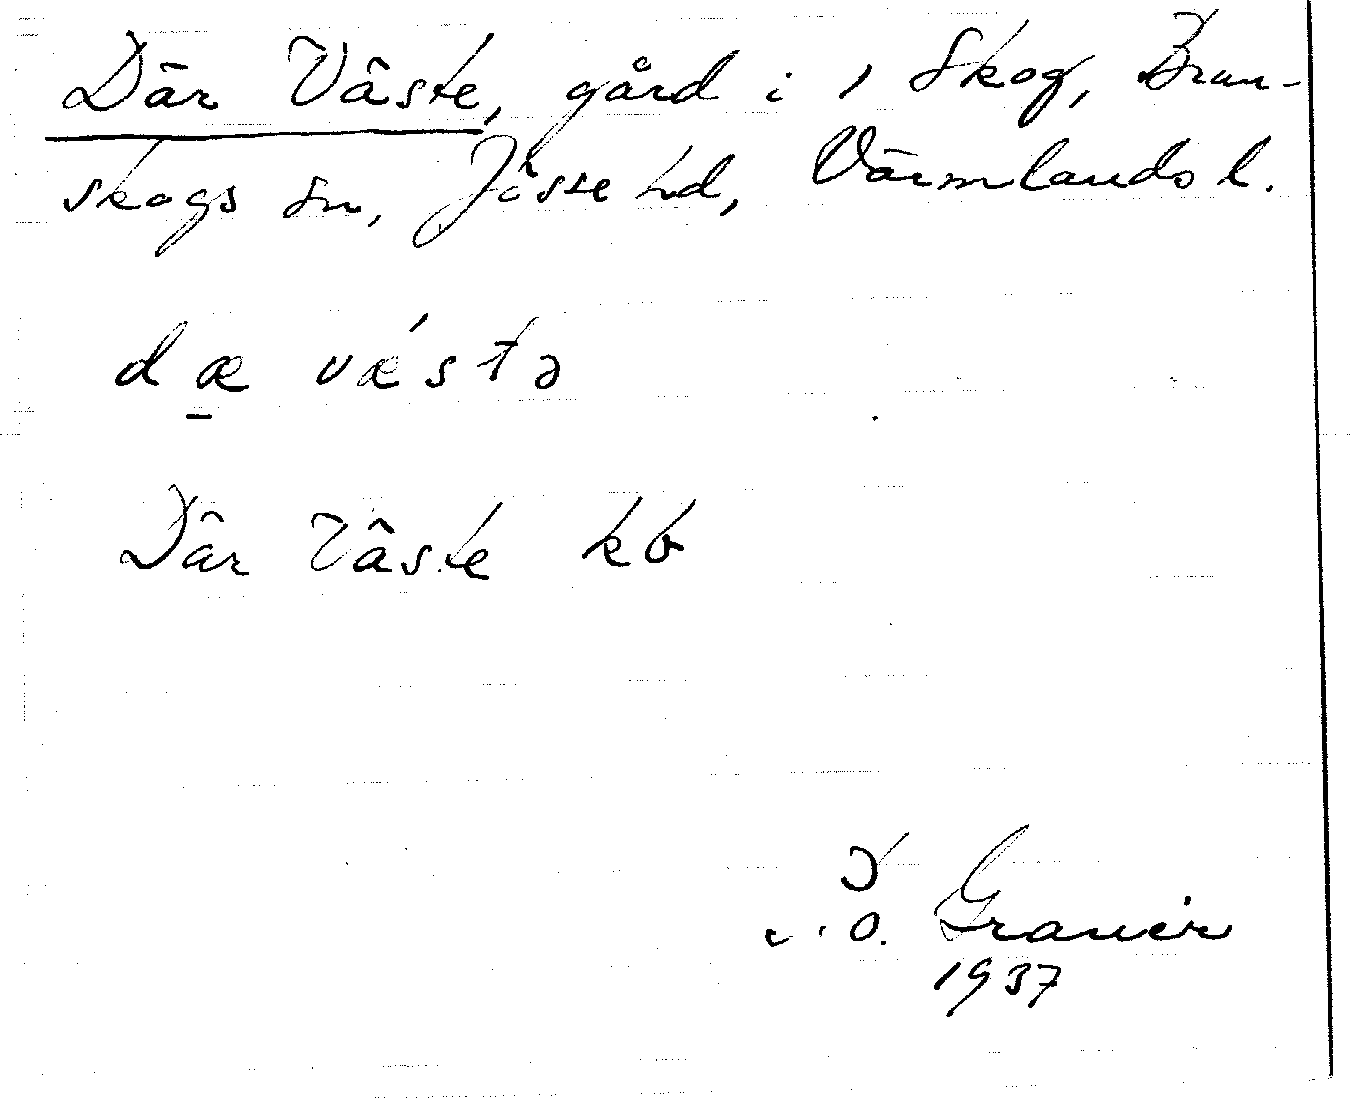 Där Väste, gård i 1 Skog, Brun-
skogs sn, Jösse hd, Värmlands l.
dæ væ´stə
Där Väste kb
O. Granér
1937